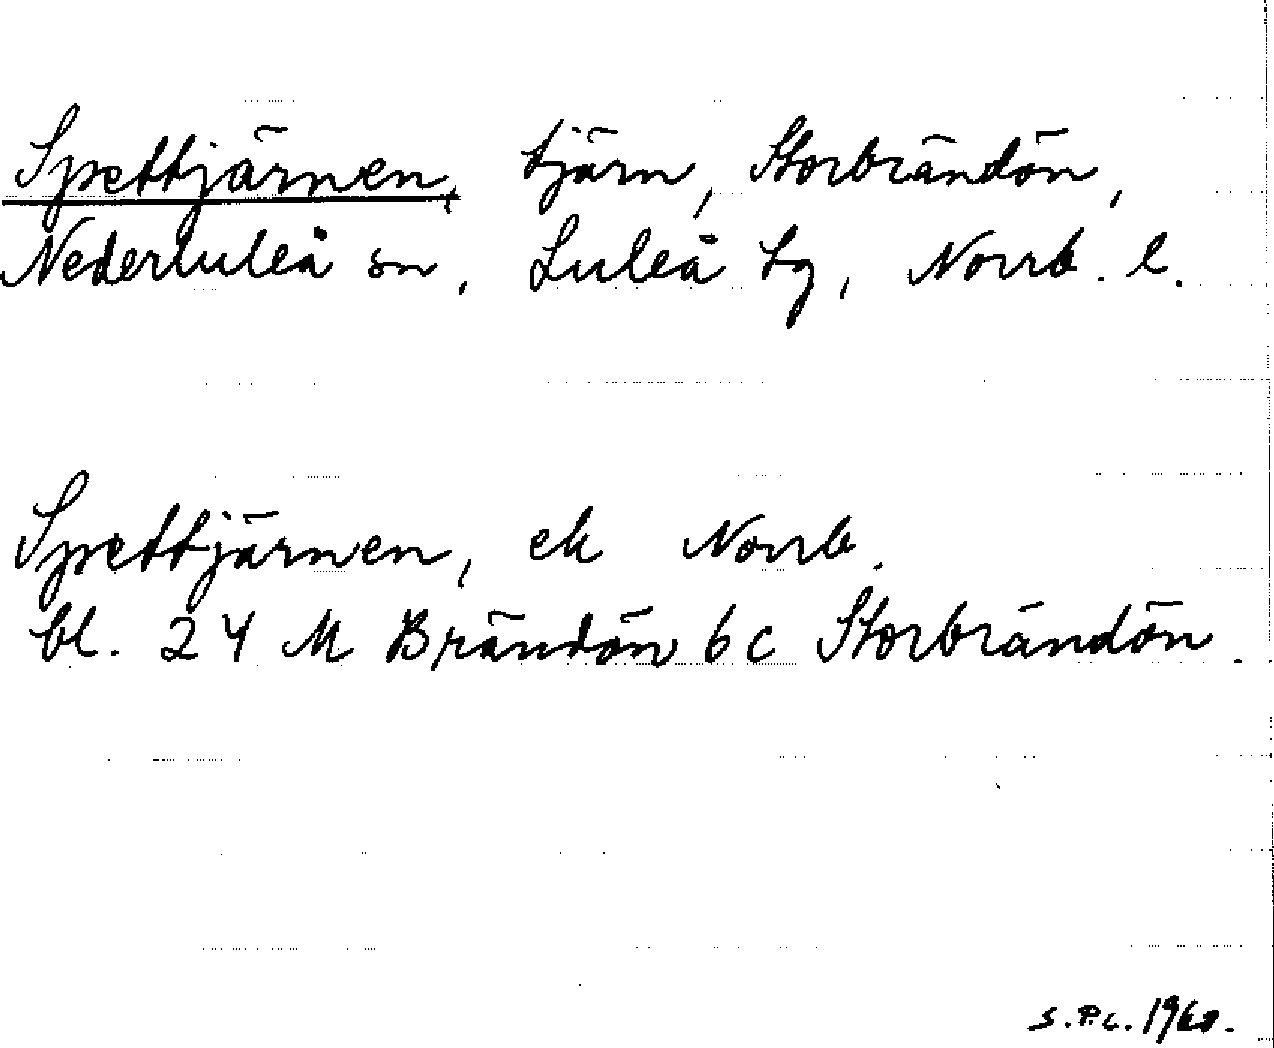 Spettjärnen, tjärn, Storbrändön,
Nederluleå sn, Luleå tg, Norrb. l.
Spettjärnen, ek Norrb.
bl. 24 M Brändön 6 c Storbrändön.
S.P.L.